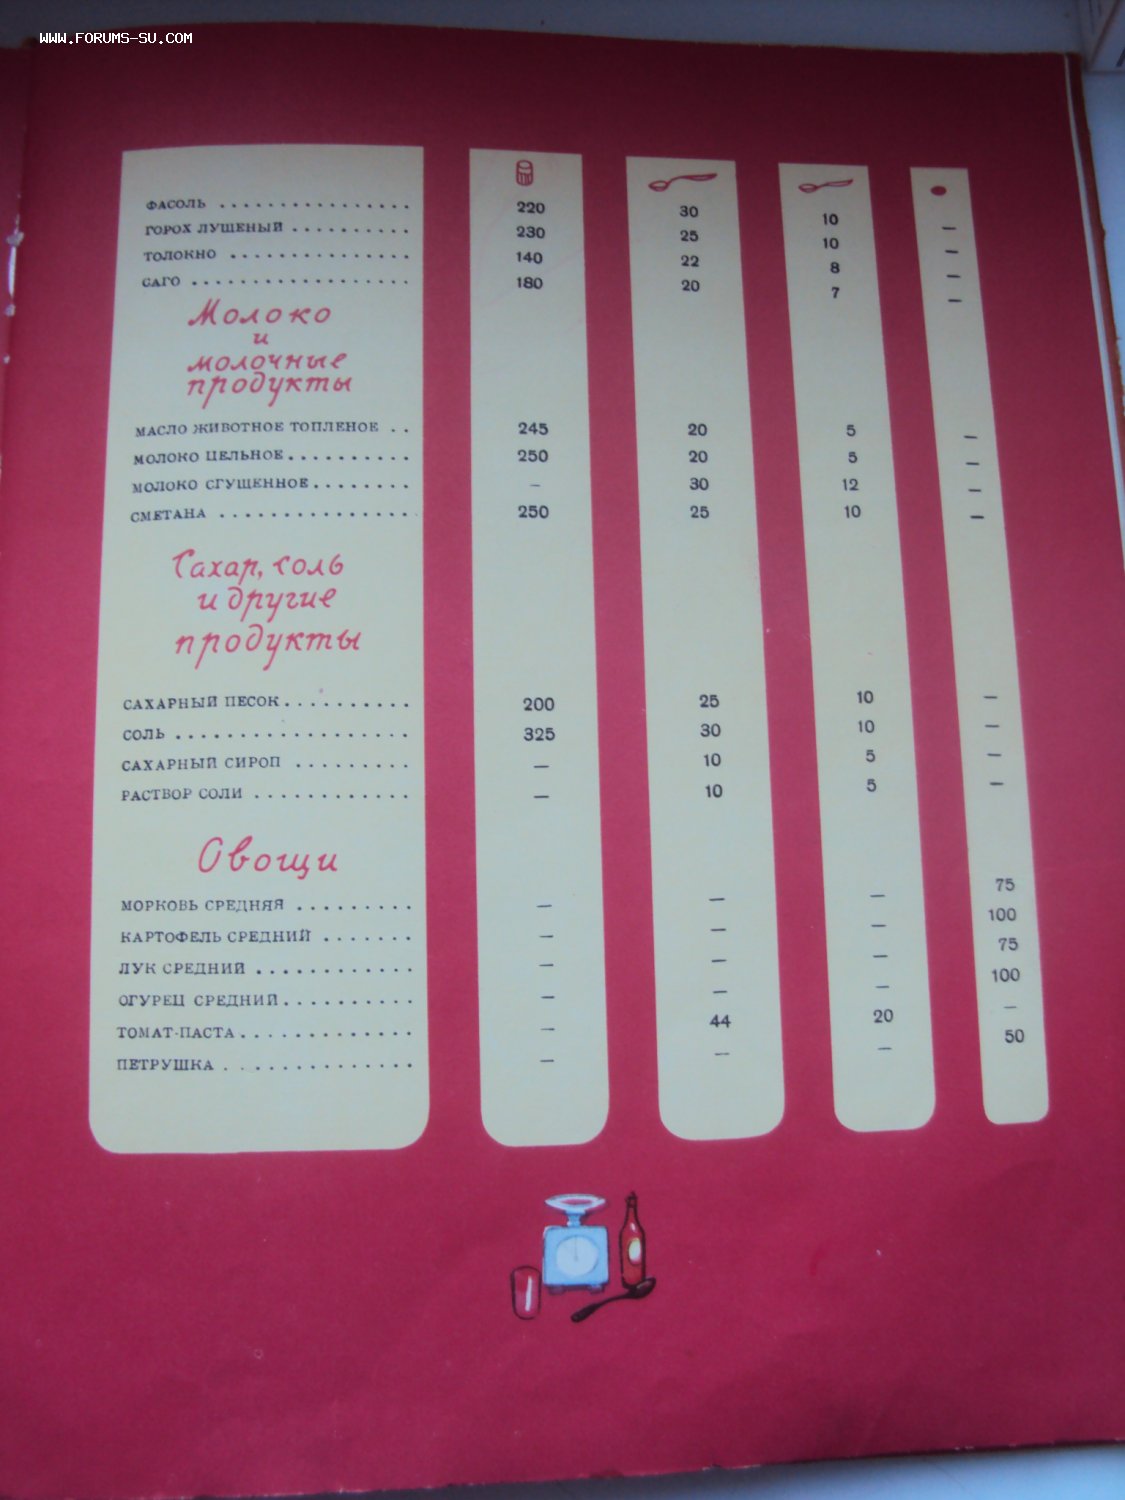 WWW.FORUMS-SU.COM
ФАСОЛЬ ................ 220 30 10 —
ГОРОХ ЛУЩЕНЫЙ .......... 230 25 10 —
ТОЛОКНО ............... 140 22 8 —
САГО .................. 180 20 7 —
Молоко
и
молочные
продукты
МАСЛО ЖИВОТНОЕ ТОПЛЕНОЕ .. 245 20 5 —
МОЛОКО ЦЕЛЬНОЕ.......... 250 20 5 —
МОЛОКО СГУЩЕННОЕ........ – 30 12 —
СМЕТАНА ................ 250 25 10 —
Сахар, соль
и другие
продукты
САХАРНЫЙ ПЕСОК.......... 200 25 10 —
СОЛЬ ................... 325 30 10 —
САХАРНЫЙ СИРОП ......... — 10 5 —
РАСТВОР СОЛИ ............ — 10 5 —
Овощи
МОРКОВЬ СРЕДНЯЯ ......... — — — 75
КАРТОФЕЛЬ СРЕДНИЙ ....... — — — 100
ЛУК СРЕДНИЙ ............. — — — 75
ОГУРЕЦ СРЕДНИЙ.......... — — — 100
ТОМАТ-ПАСТА............. — 44 20 —
ПЕТРУШКА .............. — — — 50